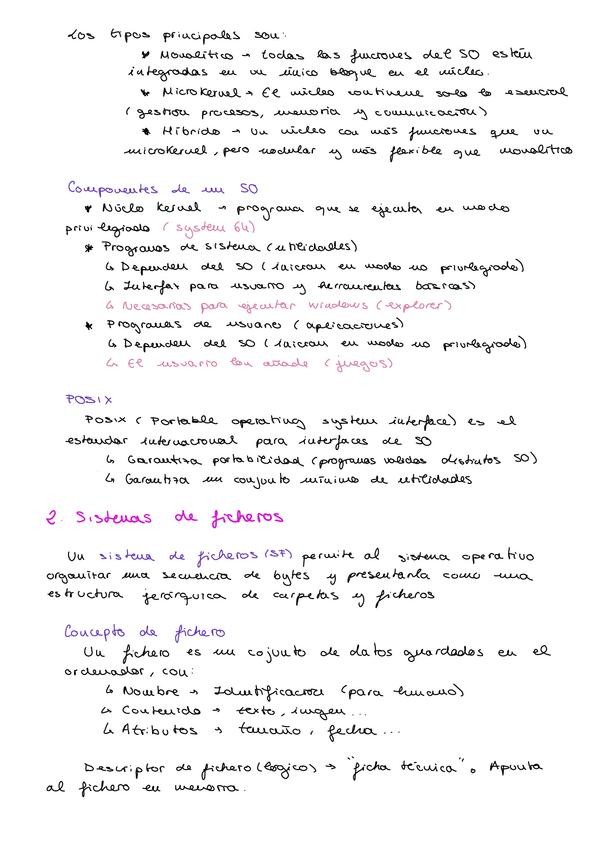 Los tipos principales son:
* Monolítico → todas las funciones del SO están
integradas en un único bloque en el núcleo.
* Microkernel → El núcleo contiene solo lo esencial
(gestión procesos, memoria y comunicación)
* Híbrido → Un núcleo con más funciones que un
microkernel, pero modular y más flexible que monolítico
Componentes de un SO
* Núclo Kernel → programa que se ejecuta en modo
privilegiado (system 64)
* Programas de sistema (utilidades)
↳ Dependen del SO (inician en modo no privilegiado)
↳ Interfaz para usuario y herramientas básicas)
↳ Necesarias para ejecutar windows (explorer)
* Programas de usuario (aplicaciones)
↳ Dependen del SO (inician en modo no privilegiado)
↳ El usuario los añade (juegos)
POSIX
Posix (Portable operating system interface) es el
estandar internacional para interfaces de SO
↳ Garantiza portabilidad (programas validos distintos SO)
↳ Garantiza un conjunto mínimo de utilidades
2. Sistemas de ficheros
Un sistema de ficheros (SF) permite al sistema operativo
organizar una secuencia de bytes y presentarla como una
estructura jerárquica de carpetas y ficheros
Concepto de fichero
Un fichero es un cojunto de datos guardados en el
ordenador, con:
↳ Nombre → Identificación (para humano)
↳ Contenido → texto, imgen...
↳ Atributos → tamaño, fecha...
Descriptor de fichero (lógico) → "ficha técnica". Apunta
al fichero en memoria.